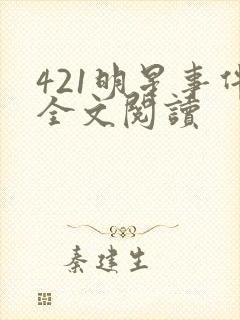 421明星事件
全文閱讀
秦建生